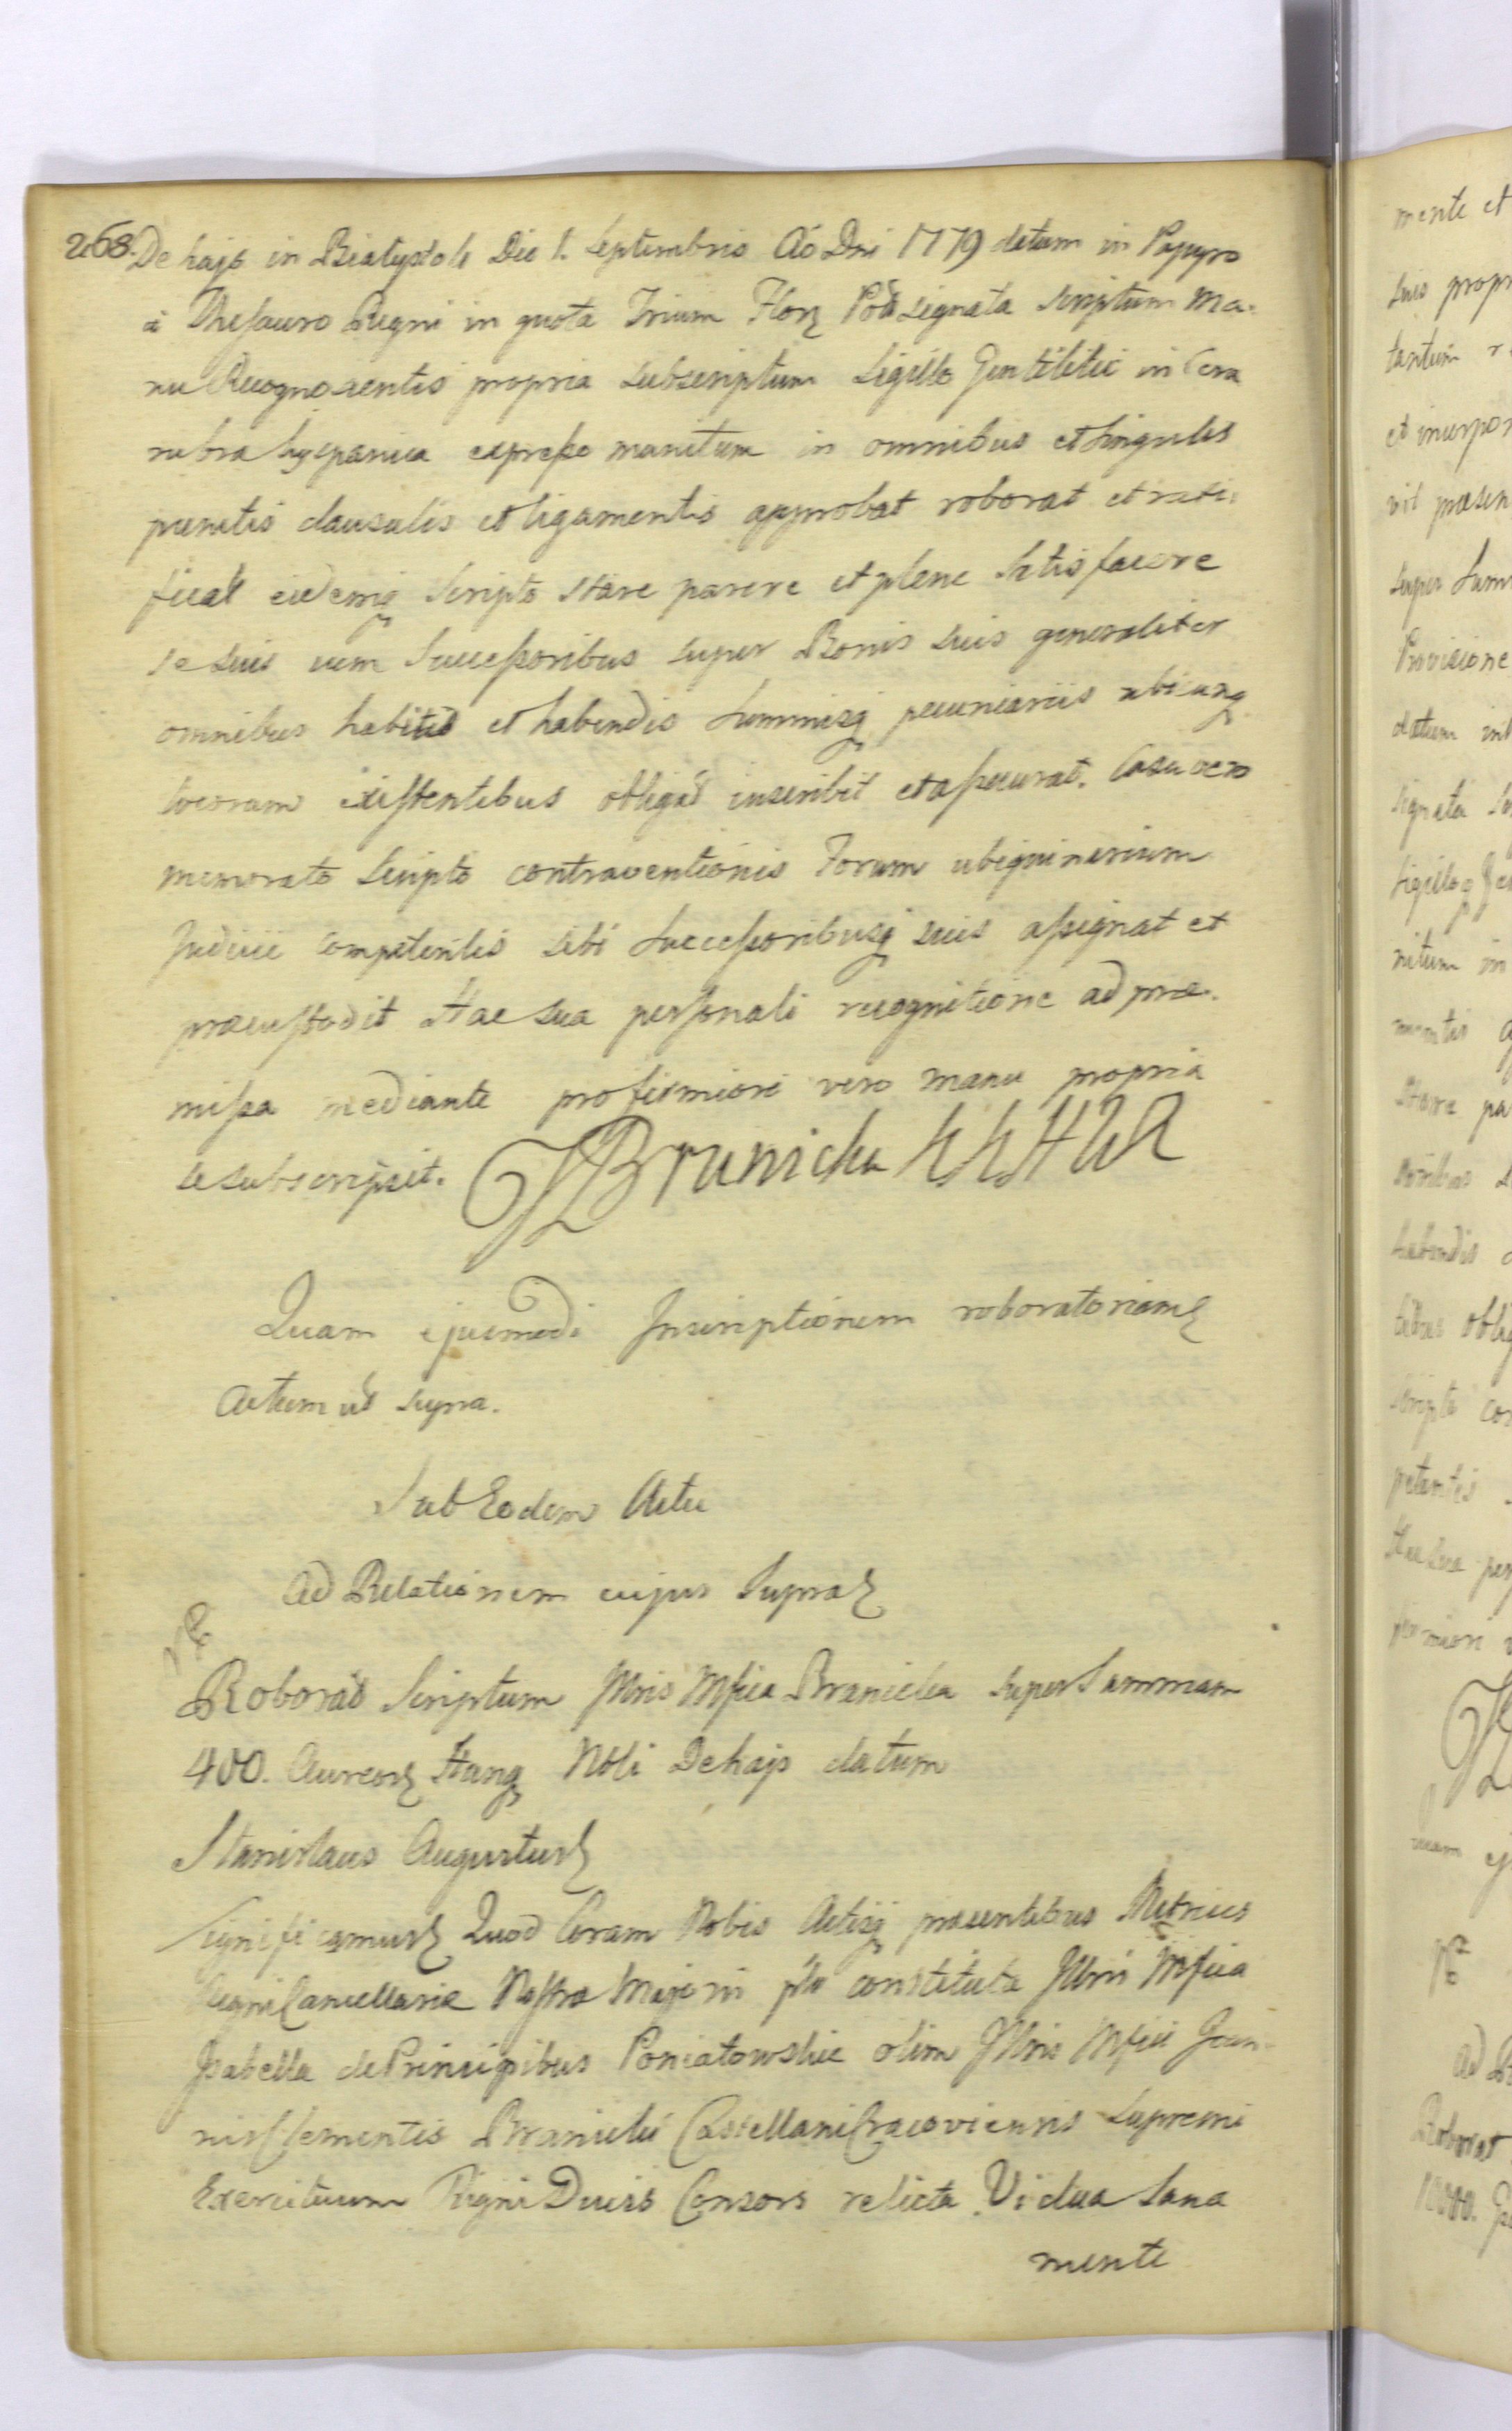 268. De hajs in Białystok Die 1. Septembris Aō Dni 1779 datum in Papyro
à Thesauro Regni in quota Trium Flor Pol signata scriptum Ma-
nu Recognoscentis propria subscriptum Sigillo Gentilitii in Cera
rubra hyspanica expresso munitum in omnibus et singulis
punctis clausulis et ligamentis approbat roborat et rati-
ficat eidemq Scripto stare parere et plene Satisfacere
se suis cum Successoribus super Bonis suis generaliter
omnibus habitis et habendis Summisq pecuniariis ubicunq
locorum existentibus obligat inscribit et assecurat. Casu vero
memorato Scripto contraventionis Forum ubiquinarium
Judicii competentis sibi Successoribusq suis assignat et
praecustodit Hac sua personali recognitione ad prae-
missa mediante pro firmiori vero manu propria
se subscripsit. J Branicka
Quam ejusmodi Inscriptionem roboratoriam
Actum ut supra.
Sub Eodem Actu
Ad Relationem cujus Supra
Roborat Scriptum Jllris Mfica Branicka super Summam
400. Aureor Hung Nbli Dehajs datum
Stanislaus Augustus
Significamus Quod Coram Nobis Actisq praesentibus Metrices
Regni Cancellariae Nostra Majori plr constituta Jllris Mfica
Jsabella de Principibus Poniatowskie olim Jllris Mfici Joan-
nis Clementis Branicki Castellani Cracoviensis Supremi
Exercituum Regni Ducis Consors relicta Vidua Sana
mente
mente et
suis propr
tantum
et incorpor
vit praesen
super Sum
Provisione
datum in
signata
Sigillo
nitum in
stare pa
habendis